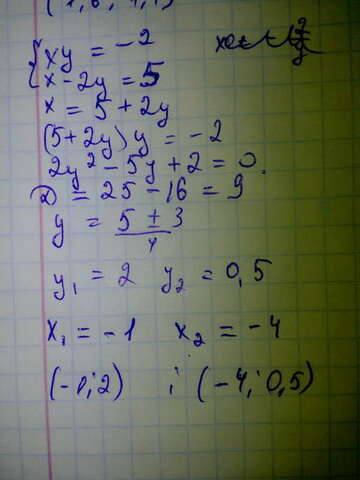 { xy = -2
x - 2y = 5
x = 5 + 2y
(5+2y)y = -2
2y² - 5y + 2 = 0.
D = 25 - 16 = 9
y = (5 ± 3)/4
y₁ = 2 y₂ = 0,5
x₁ = -1 x₂ = -4
(-1; 2) ; (-4; 0,5)